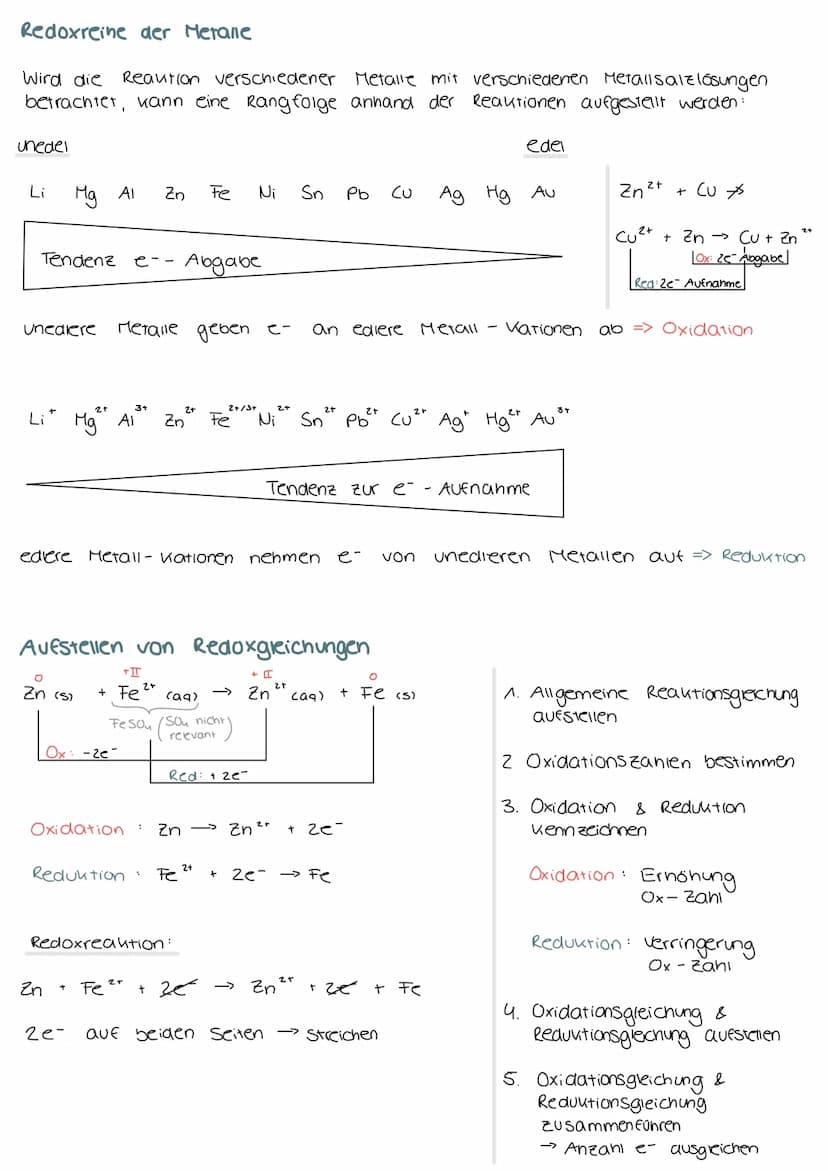 Redoxreihe der Metalle
Wird die Reaktion verschiedener Metalle mit verschiedenen Metallsalzlösungen
betrachtet, kann eine Rangfolge anhand der Reaktionen aufgestellt werden:
unedel edel
Li Mg Al Zn Fe Ni Sn Pb Cu Ag Hg Au
Tendenz e⁻ - Abgabe
Zn²⁺ + Cu ↛
Cu²⁺ + Zn → Cu + Zn²⁺
Ox: 2e⁻ Abgabe
Red: 2e⁻ Aufnahme
unedlere Metalle geben e⁻ an edlere Metall - Kationen ab => Oxidation
Li⁺ Mg²⁺ Al³⁺ Zn²⁺ Fe²⁺/³⁺ Ni²⁺ Sn²⁺ Pb²⁺ Cu²⁺ Ag⁺ Hg²⁺ Au³⁺
Tendenz zur e⁻ - Aufnahme
edlere Metall - Kationen nehmen e⁻ von unedleren Metallen auf => Reduktion
Aufstellen von Redoxgleichungen
0 +II +II 0
Zn (s) + Fe²⁺ (aq) → Zn²⁺ (aq) + Fe (s)
FeSO₄ (SO₄ nicht
relevant)
Ox: -2e⁻
Red: +2e⁻
Oxidation : Zn → Zn²⁺ + 2e⁻
Reduktion : Fe²⁺ + 2e⁻ → Fe
Redoxreaktion:
Zn + Fe²⁺ + 2e⁻ → Zn²⁺ + 2e⁻ + Fe
2e⁻ auf beiden Seiten → streichen
1. Allgemeine Reaktionsgleichung
aufstellen
2 Oxidationszahlen bestimmen
3. Oxidation & Reduktion
kennzeichnen
Oxidation : Erhöhung
Ox - Zahl
Reduktion : Verringerung
Ox - Zahl
4. Oxidationsgleichung &
Reduktionsglechung aufstellen
5. Oxidationsgleichung &
Reduktionsgleichung
zusammenführen
→ Anzahl e⁻ ausgleichen